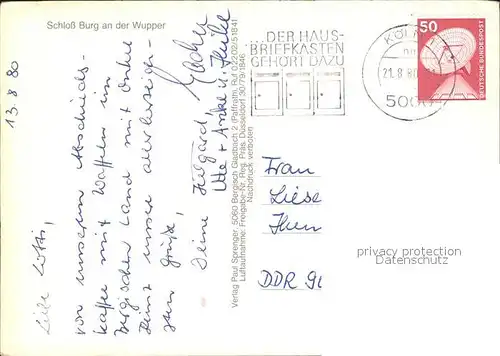 Schloß Burg an der Wupper
13.8.80
Liebe Lotti,
von unserem Abschieds-
kaffee mit Waffeln im
Bergischen Land mit Onkel
Heinz unsere allerherzlich-
sten Grüße,
Deine Helgard,
Ute + Anke u. Heike
Verlag Paul Sprenger, 5060 Bergisch Gladbach 2 (Paffrath), Ruf 02202/51841
Luftaufnahme: Freigabe-Nr. Reg. Präs. Düsseldorf 30/79/1846
Nachdruck verboten
...DER HAUS-
BRIEFKASTEN
GEHÖRT DAZU
KÖLN 1
21.8.80
5000
50
DEUTSCHE BUNDESPOST
Frau
Liese
DDR 91
privacy protection
Datenschutz